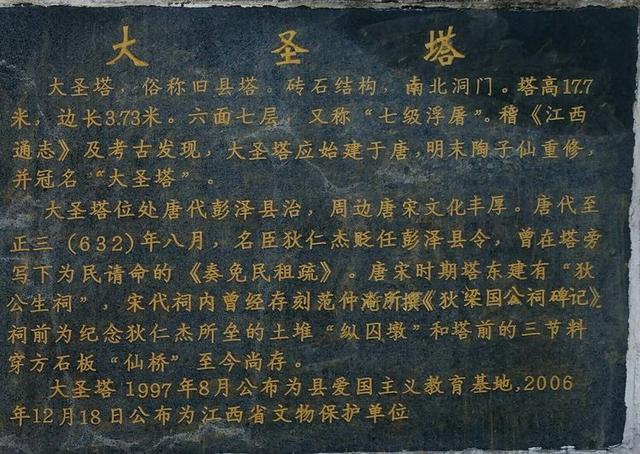 大圣塔
大圣塔，俗称旧县塔。砖石结构，南北洞门。塔高17.7
米，边长3.73米。六面七层，又称“七级浮屠”。稽《江西
通志》及考古发现，大圣塔应始建于唐，明末陶子仙重修，
并冠名“大圣塔”。
大圣塔位处唐代彭泽县治，周边唐宋文化丰厚。唐代至
正三（632）年八月，名臣狄仁杰贬任彭泽县令，曾在塔旁
写下为民请命的《奏免民租疏》。唐宋时期塔东建有“狄
公生祠”，宋代祠内曾经存刻范仲淹所撰《狄梁国公祠碑记》
祠前为纪念狄仁杰所垒的土堆“纵囚墩”和塔前的三节料
穿方石板“仙桥”至今尚存。
大圣塔1997年8月公布为县爱国主义教育基地,2006
年12月18日公布为江西省文物保护单位